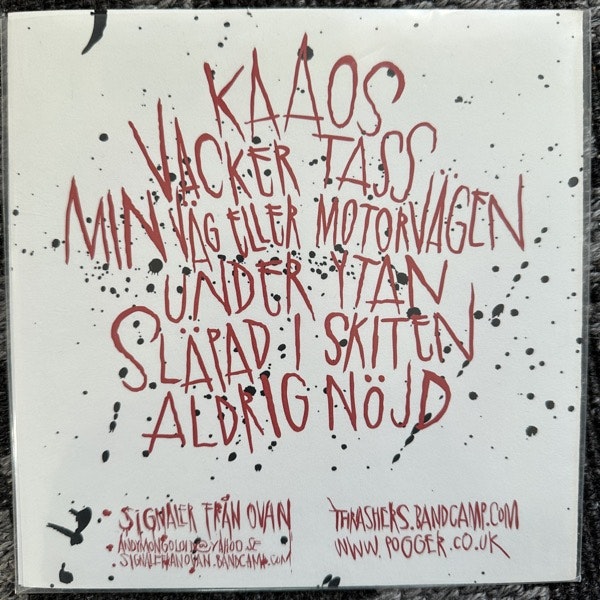 KAAOS
VACKER TASS
MIN VÄG ELLER MOTORVÄGEN
UNDER YTAN
SLÄPAD I SKITEN
ALDRIG NÖJD
SIGNALER FRÅN OVAN
THRASHERS.BANDCAMP.COM
ANDYMONGOLOID@YAHOO.SE
WWW.POGGER.CO.UK